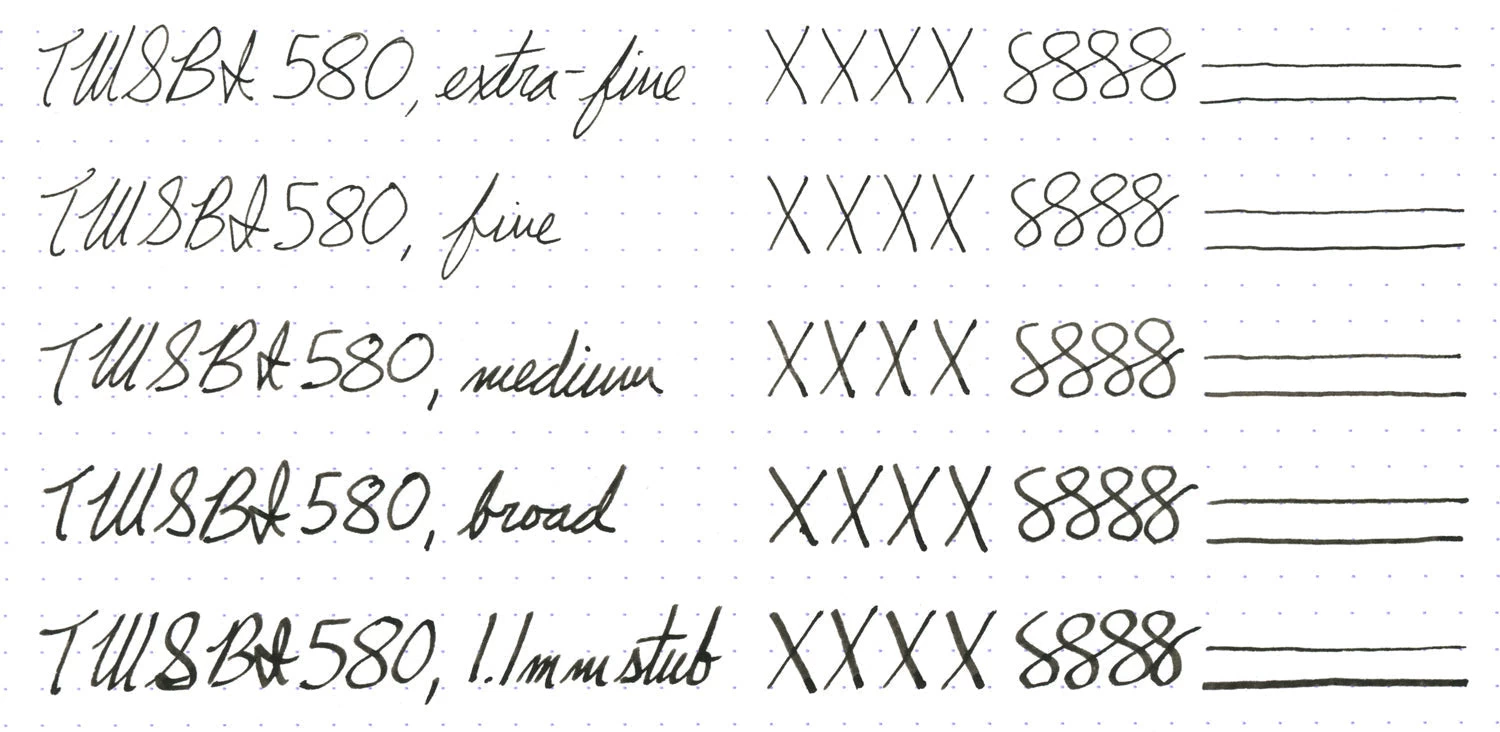 TWSBI 580, extra-fine XXXX 8888
TWSBI 580, fine XXXX 8888
TWSBI 580, medium XXXX 8888
TWSBI 580, broad XXXX 8888
TWSBI 580, 1.1mm stub XXXX 8888